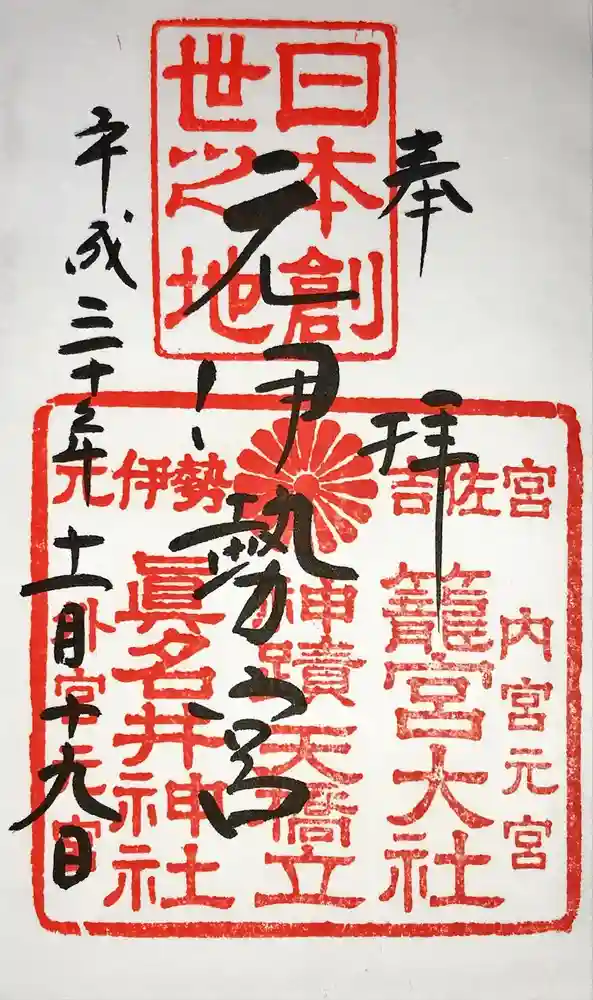 奉拝
日本創
世之地
元伊勢宮
平成三十年十一月十九日
元伊勢 吉佐宮
内宮元宮
籠宮大社
神蹟天橋立
眞名井神社
外宮元宮